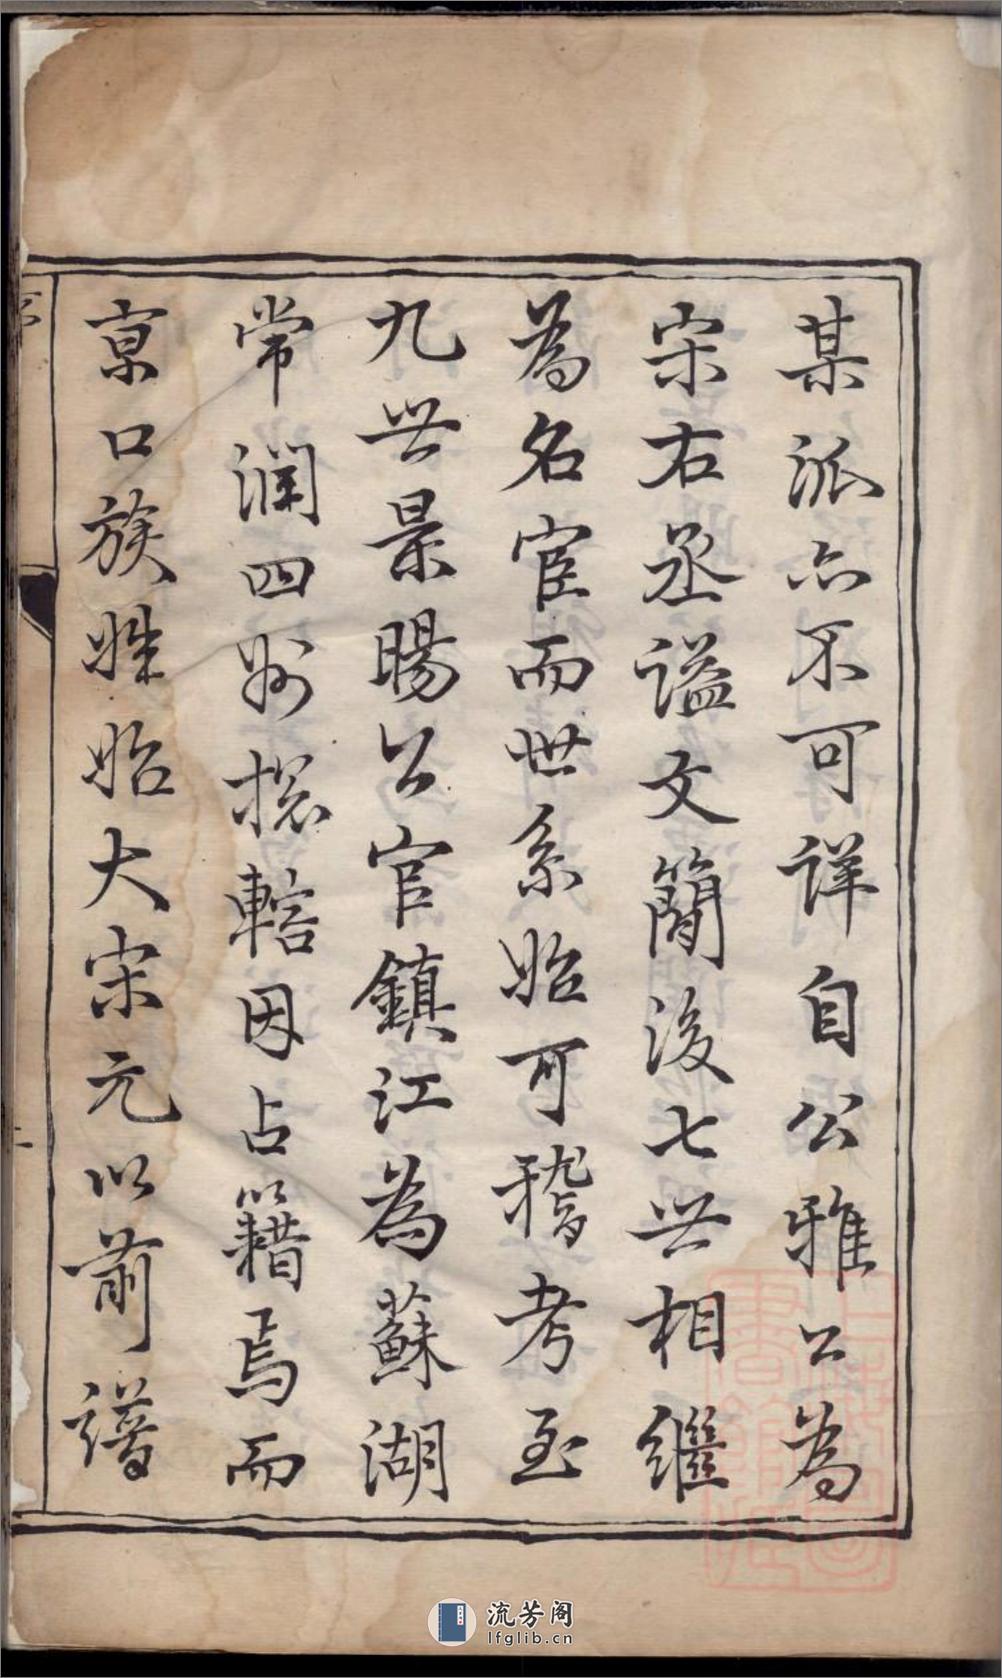 某派亦不可詳自公雅公為
宋右丞謚文簡後七世相繼
為名宦而世系始可稽考至
九世景暘公官鎮江為蘇湖
常潤四州總轄因占籍焉而
京口族姓始大宋元以前譜
流芳阁
lfglib.cn